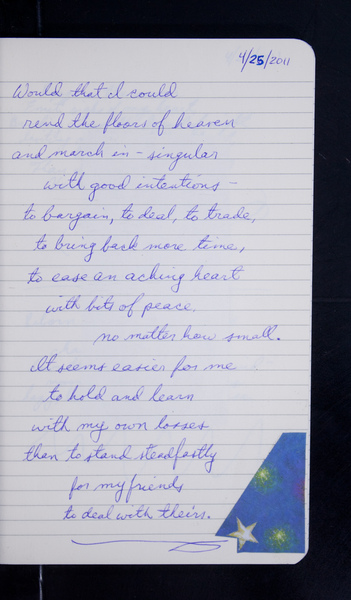 4/25/2011
Would that I could
rend the floors of heaven
and march in - singular
with good intentions -
to bargain, to deal, to trade,
to bring back more time,
to ease an aching heart
with bits of peace,
no matter how small.
It seems easier for me
to hold and learn
with my own losses
than to stand steadfastly
for my friends
to deal with theirs.